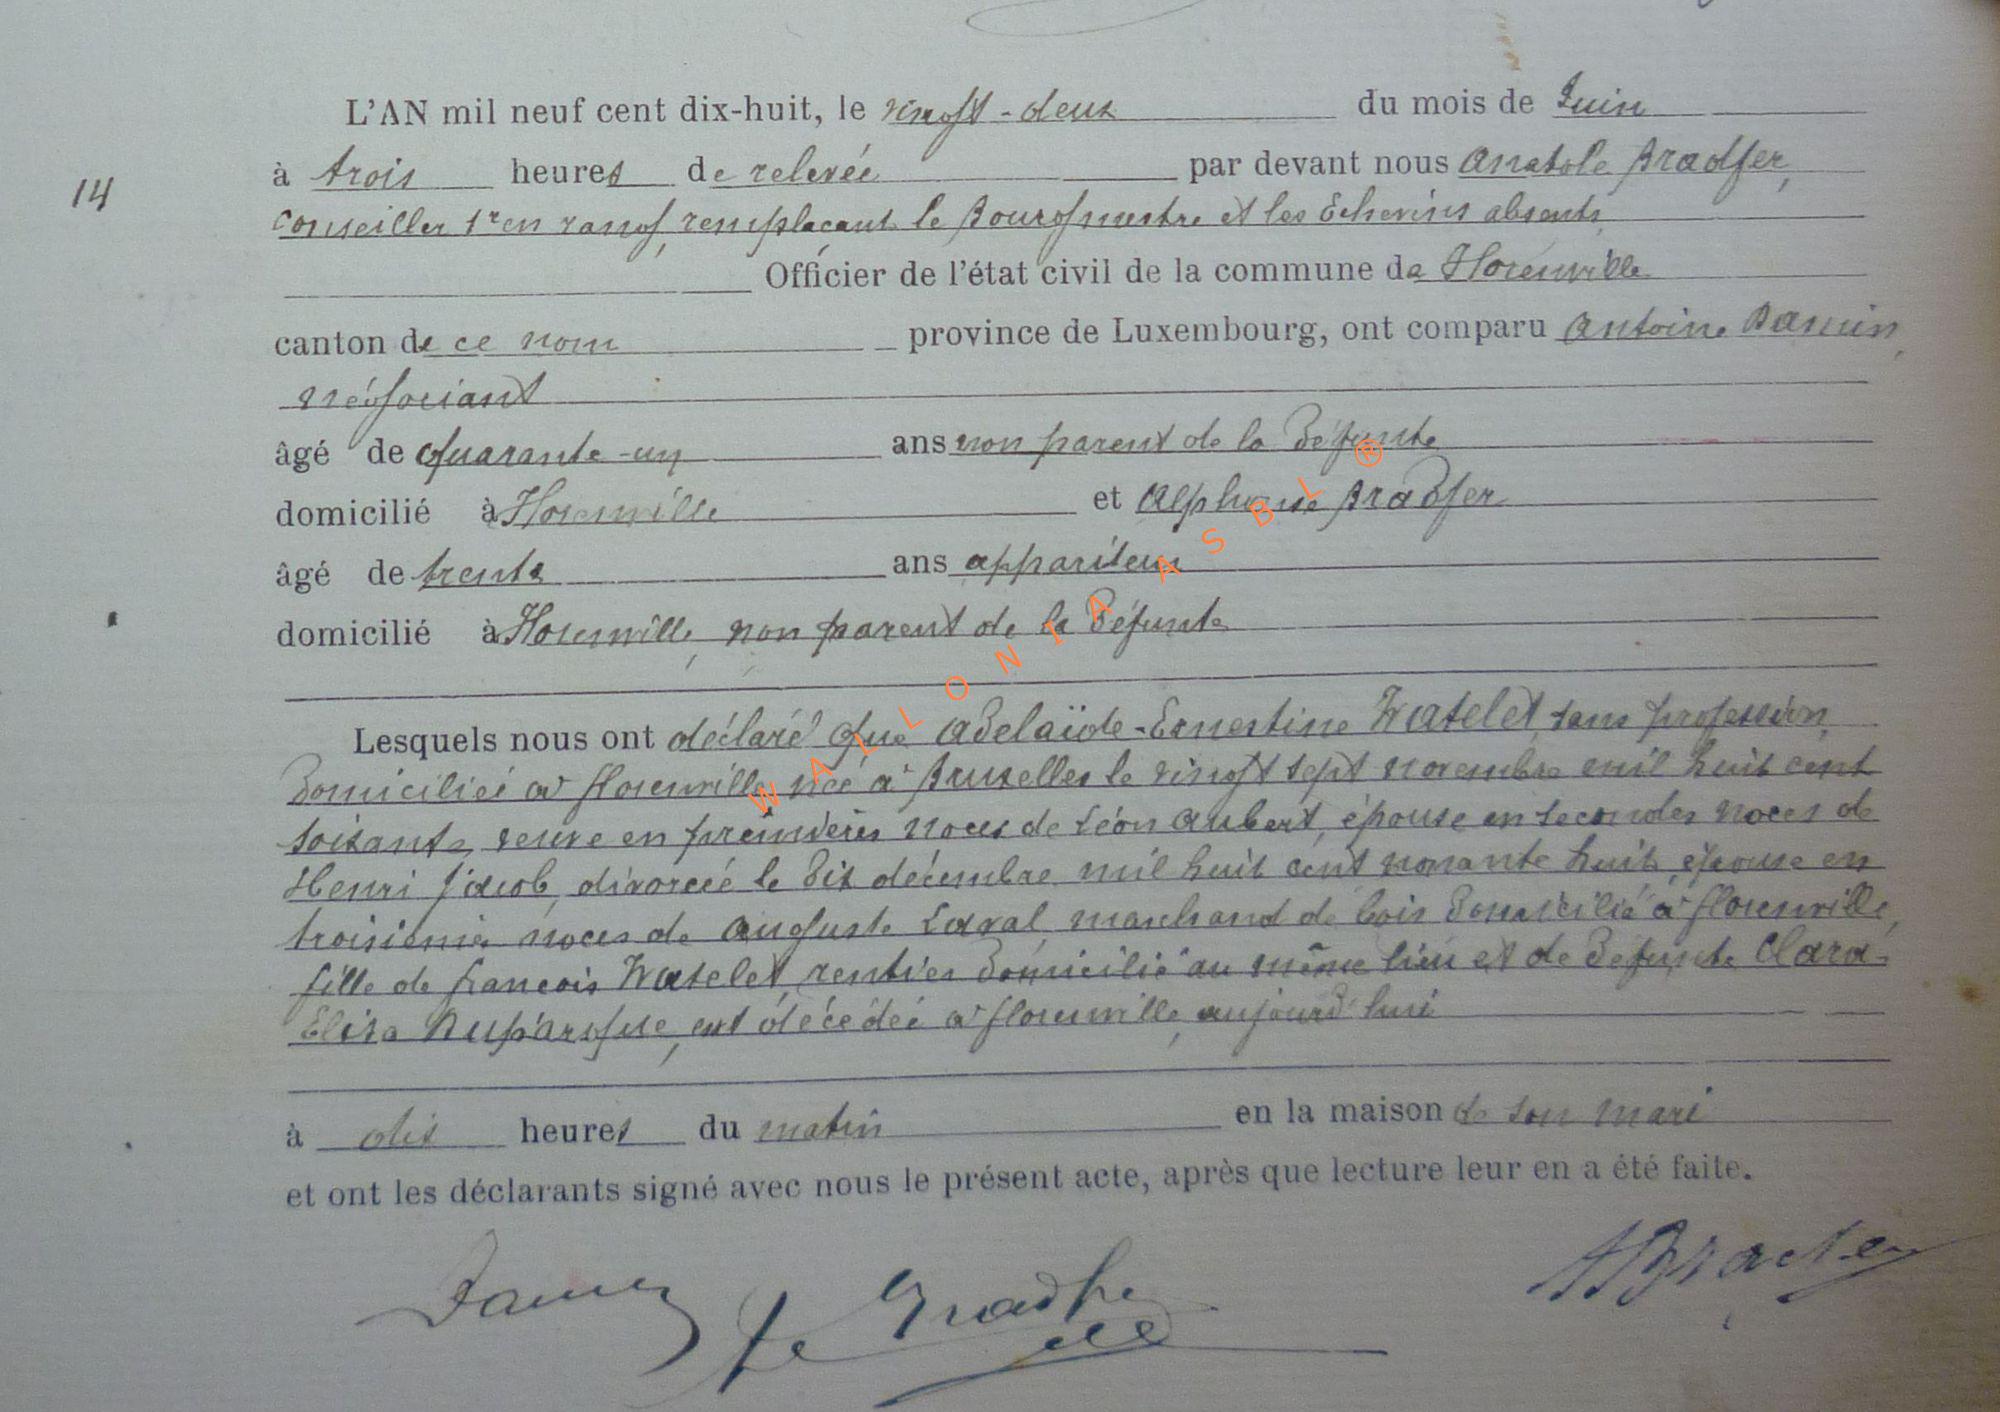 L'AN mil neuf cent dix-huit, le vingt-deux du mois de Juin
à trois heures de relevée par devant nous Anatole Bradfer,
14
Conseiller 1r en rang, remplaçant le Bourgmestre et les Echevins absents,
Officier de l'état civil de la commune de Florenville
canton de ce nom province de Luxembourg, ont comparu Antoine Damin,
négociant
âgé de quarante-un ans non parent de la Défunte
domicilié à Florenville et Alphonse Bradfer
âgé de trente ans appariteur
domicilié à Florenville, non parent de la Défunte
Lesquels nous ont déclaré que Adelaïde-Ernestine Watelet, sans profession,
Domiciliée à Florenville, née à Bruxelles le vingt sept novembre mil huit cent
soixante, veuve en premières noces de Léon Aubert, épouse en secondes noces de
Henri Jacob, divorcée le Dix décembre mil huit cent nonante huit, épouse en
troisième noces de Auguste Laval, marchand de bois Domicilié à Florenville,
fille de François Watelet, rentier Domicilié au même lieu et de Défunte Clara-
Elisa, est décédée à Florenville, aujourd'hui
à dix heures du matin en la maison de son mari
et ont les déclarants signé avec nous le présent acte, après que lecture leur en a été faite.
Damin
ABradfer
WALLONIA ASBL ®